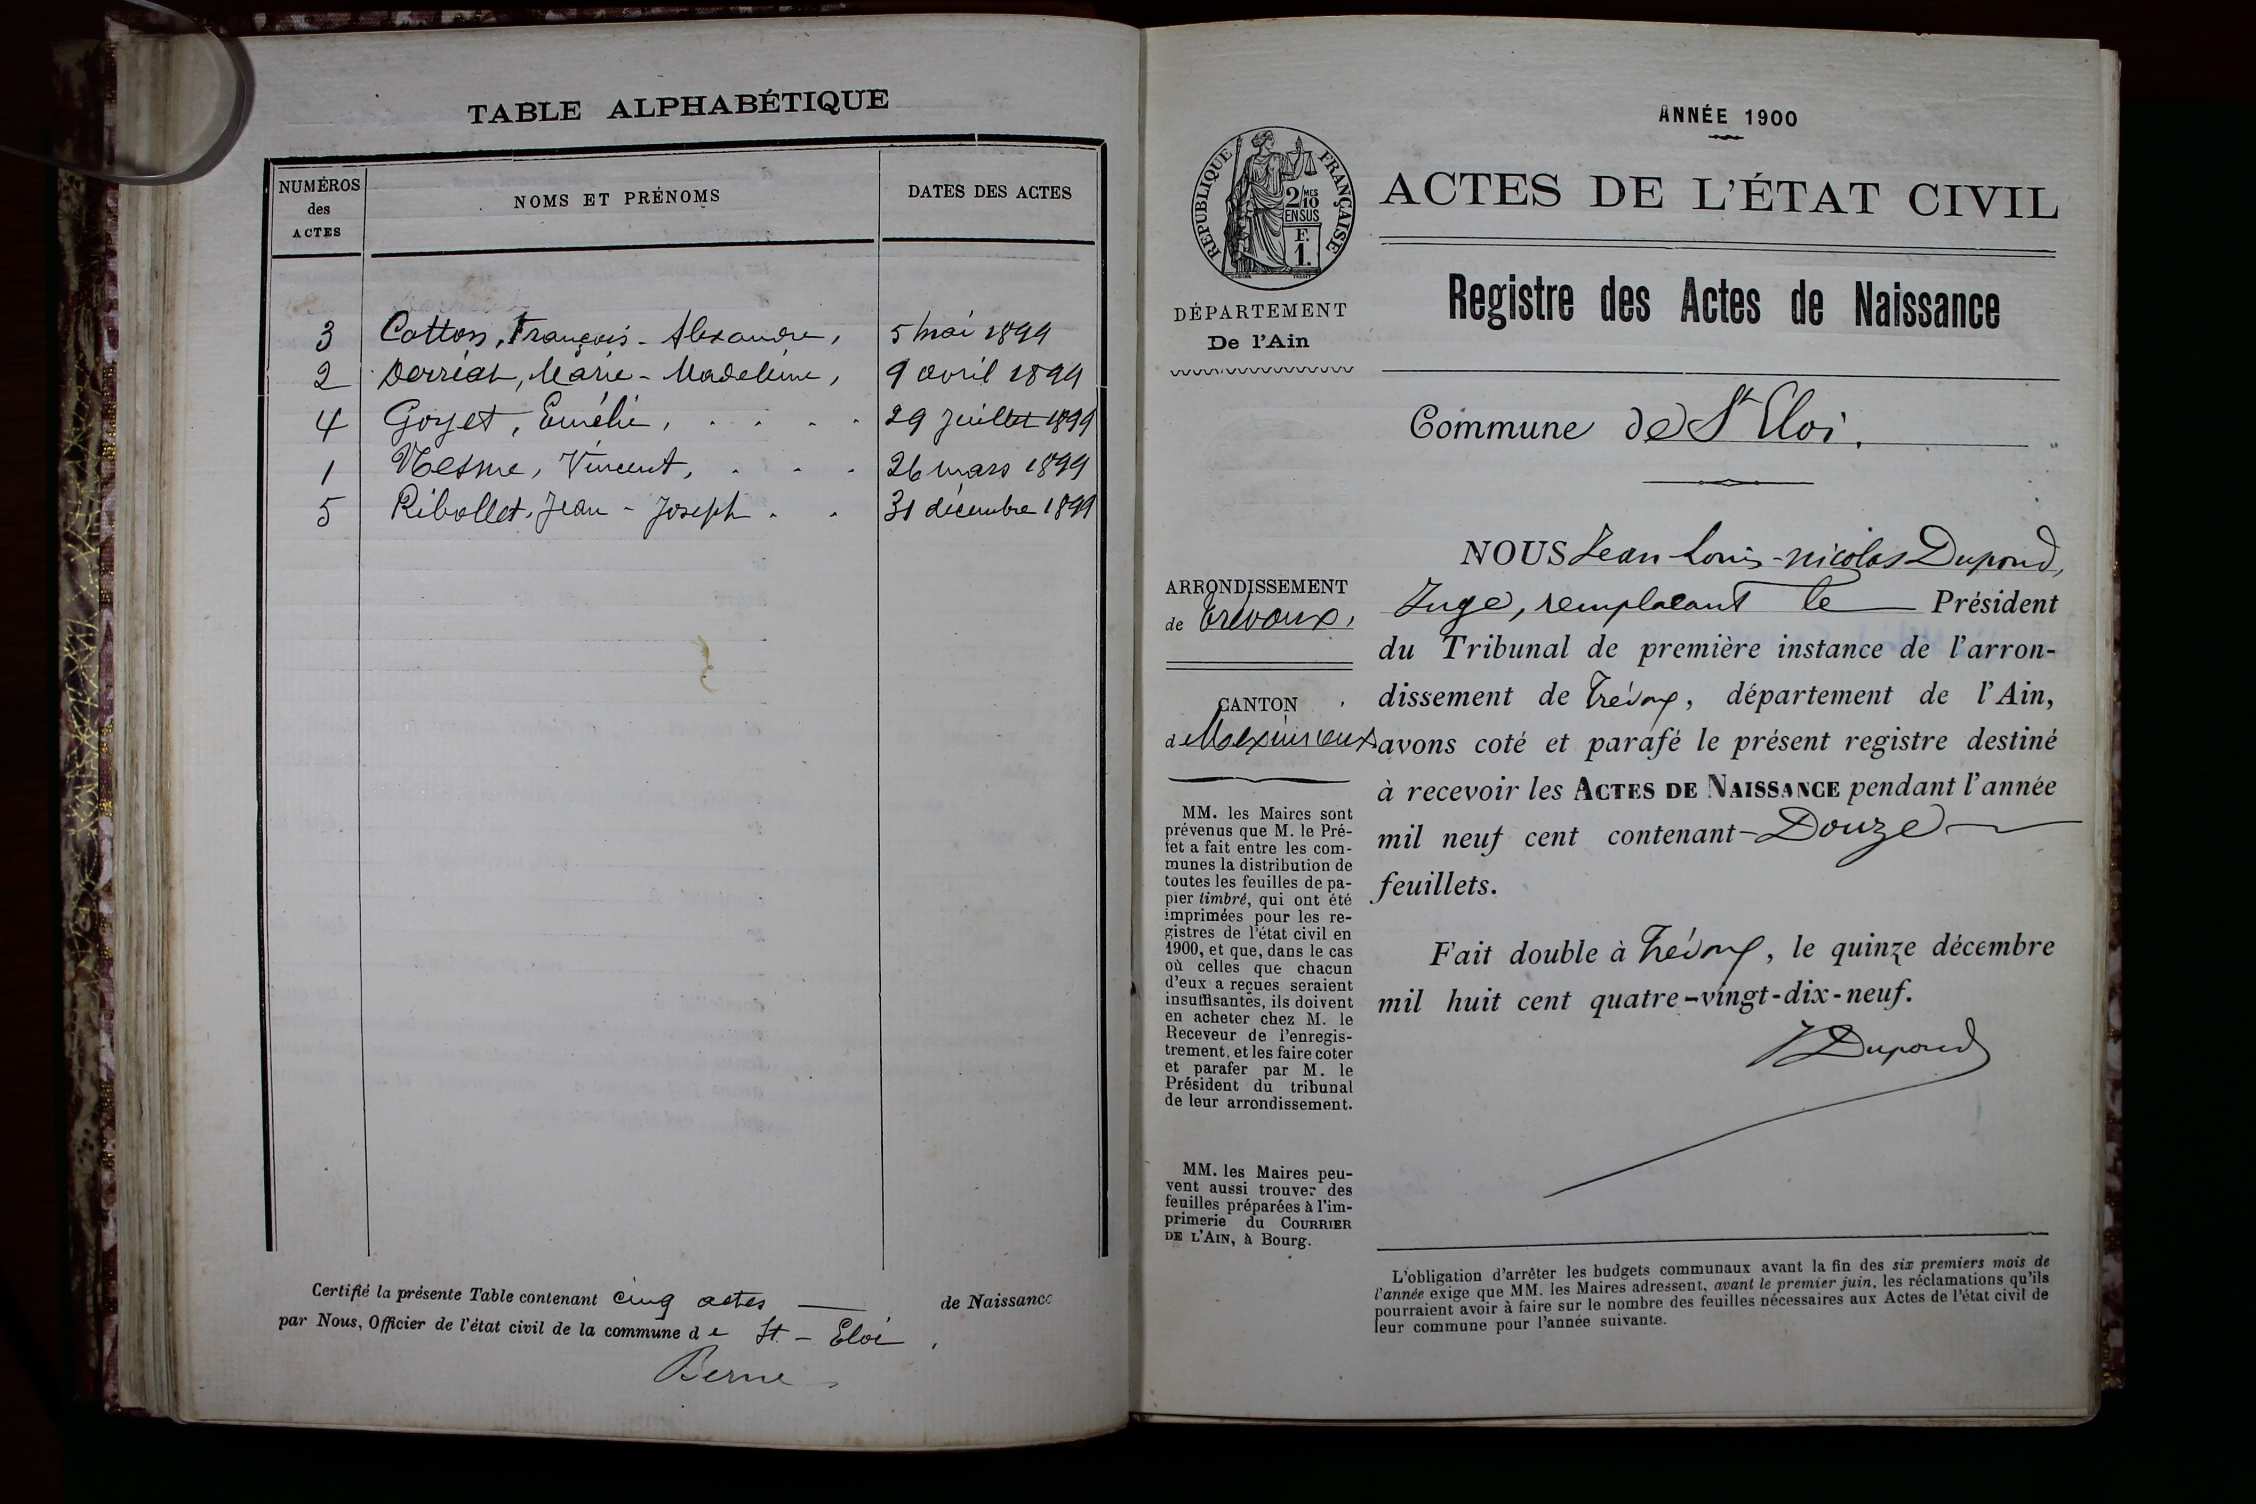 TABLE ALPHABÉTIQUE
NUMÉROS
des
ACTES
NOMS ET PRÉNOMS
DATES DES ACTES
3 Cotton, François-Alexandre, 5 mai 1899
2 Derriat, Marie-Madeleine, 9 avril 1899
4 Goyet, Emélie, . . . . 29 juillet 1899
1 Mesme, Vincent, . . . 26 mars 1899
5 Ribollet, Jean-Joseph . . 31 décembre 1899
Certifié la présente Table contenant cinq actes de Naissance
par Nous, Officier de l'état civil de la commune de St-Eloi,
Berne
ANNÉE 1900
RÉPUBLIQUE FRANÇAISE
2/10 MES
EN SUS
F.
1.
ACTES DE L'ÉTAT CIVIL
DÉPARTEMENT
De l'Ain
Registre des Actes de Naissance
Commune de St Eloi.
ARRONDISSEMENT
de Trévoux,
CANTON
de Meximieux
MM. les Maires sont
prévenus que M. le Pré-
fet a fait entre les com-
munes la distribution de
toutes les feuilles de pa-
pier timbré, qui ont été
imprimées pour les re-
gistres de l'état civil en
1900, et que, dans le cas
où celles que chacun
d'eux a reçues seraient
insuffisantes, ils doivent
en acheter chez M. le
Receveur de l'enregis-
trement, et les faire coter
et parafer par M. le
Président du tribunal
de leur arrondissement.
MM. les Maires peu-
vent aussi trouver des
feuilles préparées à l'im-
primerie du COURRIER
DE L'AIN, à Bourg.
NOUS Jean Louis-nicolas Dupond,
Juge, remplacant le Président
du Tribunal de première instance de l'arron-
dissement de Trévoux, département de l'Ain,
avons coté et parafé le présent registre destiné
à recevoir les ACTES DE NAISSANCE pendant l'année
mil neuf cent contenant - Douze
feuillets.
Fait double à Trévoux, le quinze décembre
mil huit cent quatre-vingt-dix-neuf.
Dupond
L'obligation d'arrêter les budgets communaux avant la fin des six premiers mois de
l'année exige que MM. les Maires adressent, avant le premier juin, les réclamations qu'ils
pourraient avoir à faire sur le nombre des feuilles nécessaires aux Actes de l'état civil de
leur commune pour l'année suivante.